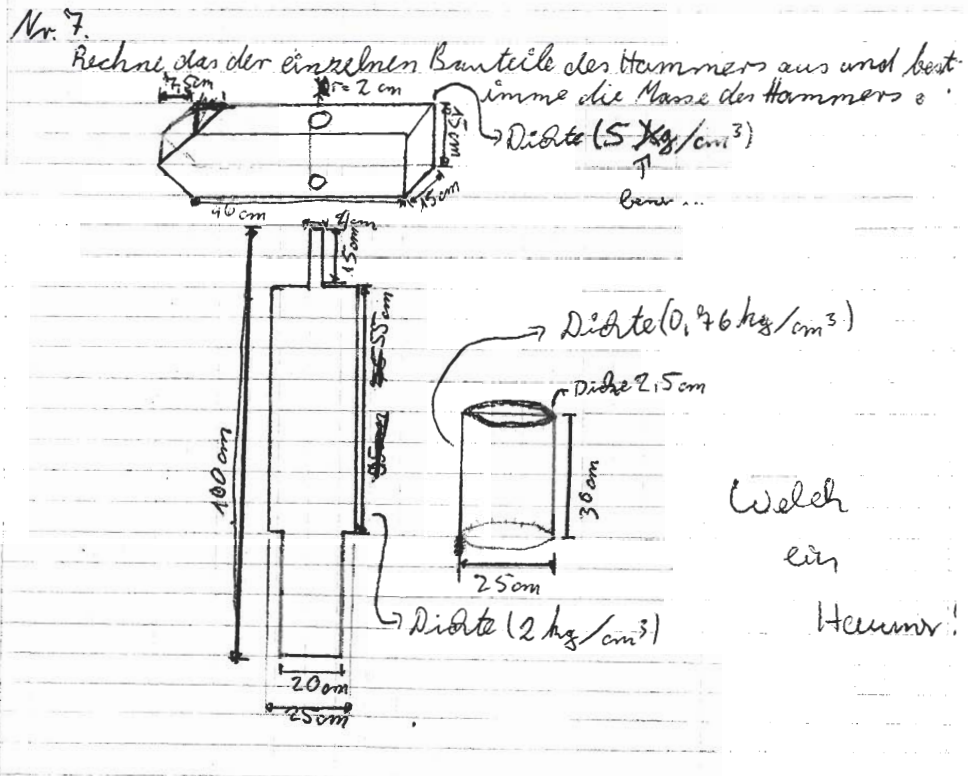 Nr. 7.
Rechne das der einzelnen Bauteile des Hammers aus und best-
imme die Masse des Hammers.
7,5cm
r = 2 cm
15cm
Dichte (5 kg/cm³)
15cm
46 cm
4cm
15cm
55cm
100cm
Dichte (0,76 kg/cm³)
Dicke 2,5cm
30cm
25cm
Dichte (2 kg/cm³)
20cm
25cm
Welch
ein
Hammer!